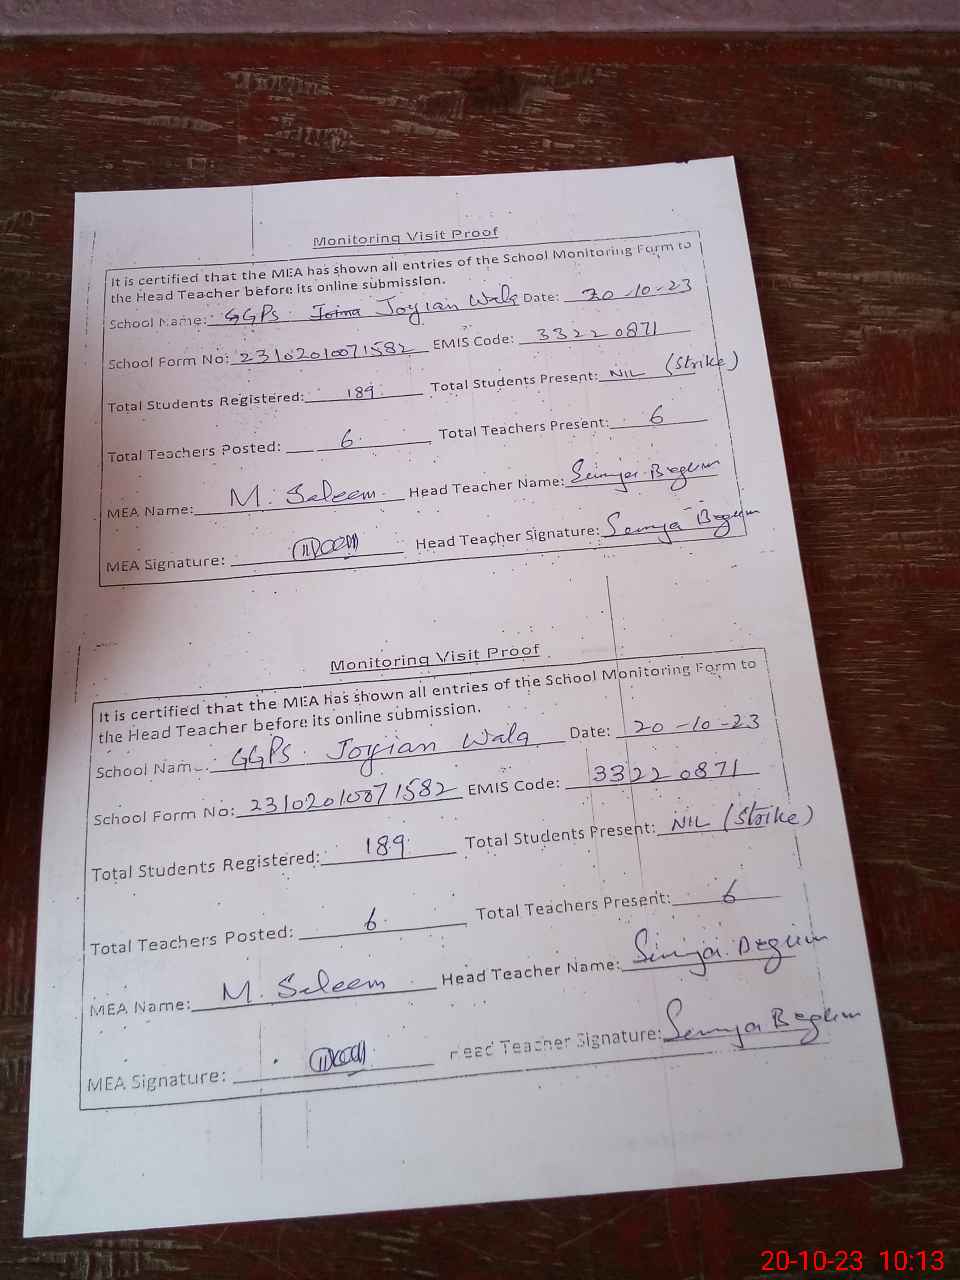 Monitoring Visit Proof
It is certified that the MEA has shown all entries of the School Monitoring Form to
the Head Teacher before its online submission.
School Name: GGPS Joyian Wala Date: 20-10-23
School Form No: 23102010071582 EMIS Code: 33220871
Total Students Registered: 189 Total Students Present: NIL (Strike)
Total Teachers Posted: 6 Total Teachers Present: 6
MEA Name: M. Saleem Head Teacher Name: Begum
MEA Signature: Head Teacher Signature: Begum
Monitoring Visit Proof
It is certified that the MEA has shown all entries of the School Monitoring Form to
the Head Teacher before its online submission.
School Nam GGPS Joyian Wala Date: 20-10-23
School Form No: 23102010071582 EMIS Code: 33220871
Total Students Registered: 189 Total Students Present: NIL (Strike)
Total Teachers Posted: 6 Total Teachers Present: 6
MEA Name: M. Saleem Head Teacher Name: Begum
MEA Signature: Head Teacher Signature: Begum
20-10-23 10:13